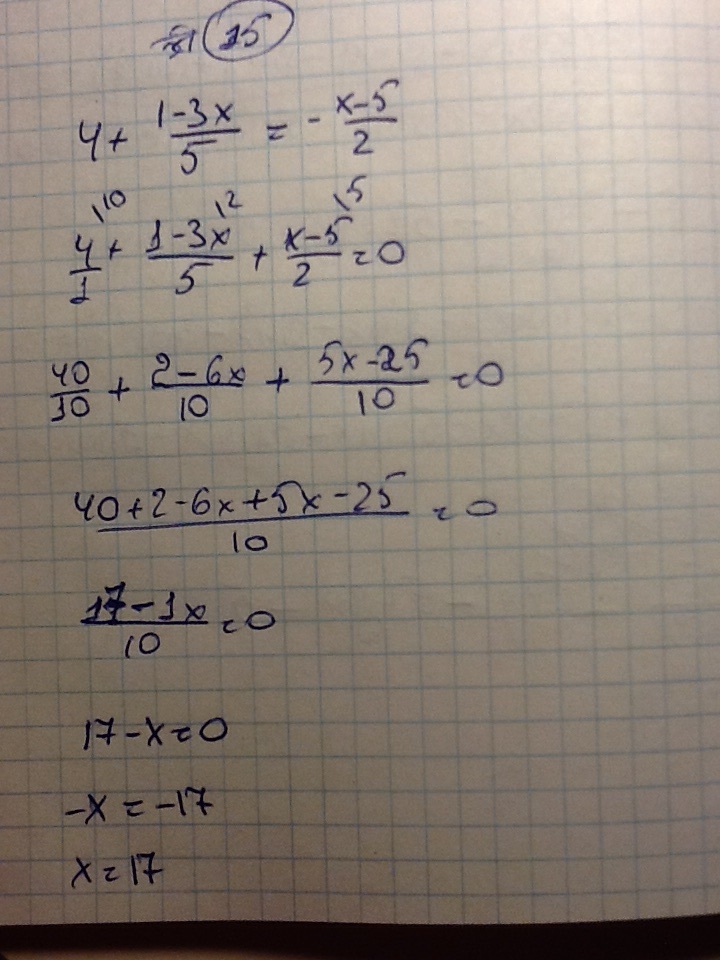 15
4 + (1-3x)/5 = - (x-5)/2
4/1 \10 + (1-3x)/5 \2 + (x-5)/2 \5 = 0
40/10 + (2-6x)/10 + (5x-25)/10 = 0
(40+2-6x+5x-25)/10 = 0
(17-1x)/10 = 0
17-x=0
-x = -17
x = 17